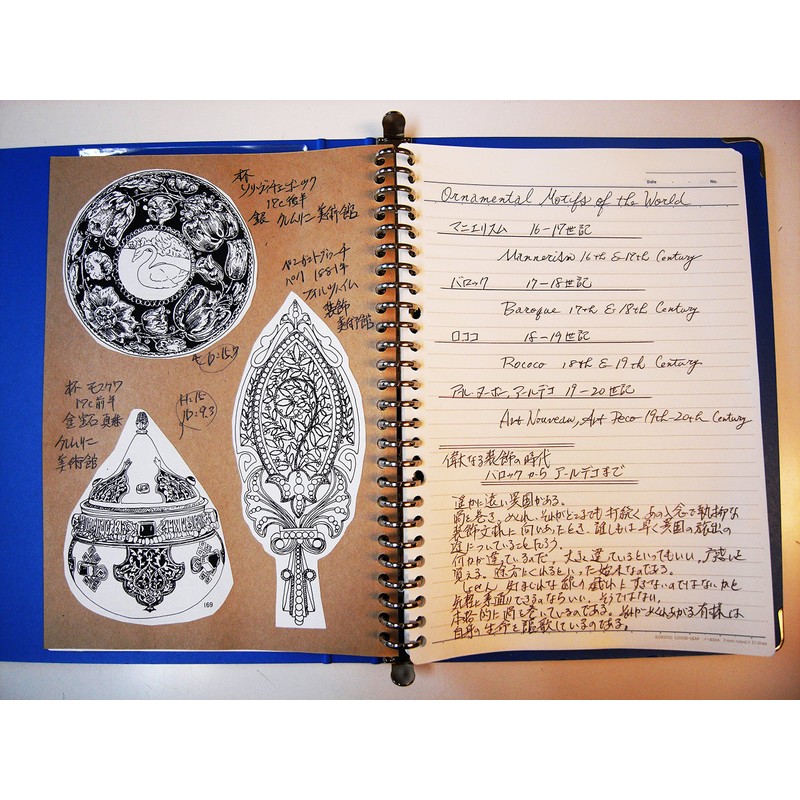 杯
ソリヴィチェゴーツク
17c後半
銀 クレムリン美術館
ペンダントブローチ
パリ 1881年
フォルツハイム
装飾
美術館
D:15.7
杯 モスクワ
17c前半
金 宝石 真珠
クレムリン
美術館
H:15
D:9.3
169
Date
No.
Ornamental Motifs of the World
マニエリスム 16-17世記
Mannerism 16th & 17th Century
バロック 17-18世記
Baroque 17th & 18th Century
ロココ 18-19世記
Rococo 18th & 19th Century
アール・ヌーボー、アールデコ 19-20世記
Art Nouveau, Art Deco 19th-20th Century
偉大なる装飾の時代
バロックから アールデコまで
遥かに遠い異国がある。
渦を巻き、めくれ、それがどこまでも打続く あの入念で執拗な
装飾文様に向いあったとき、誰しもは早く異国の旅出の
途についていることだろう。
何かが違っているのだ。大きく違っているといってもいい。戸惑いを
覚える。
気軽に素通りできるのならいい。そうではない。
本格的に渦を巻いているのである。それがめくれあがる有様は
自身の生命を謳歌しているのである。